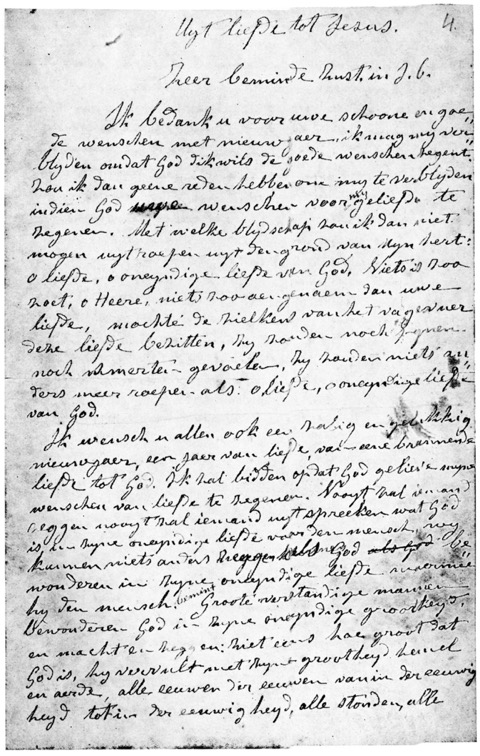 Uyt liefde tot Jesus.
4.
Zeer beminde Zust. in J. C.
Ik bedank u voor uwe schoone en goe
de wenschen met nieuwjaer, ik mag my ver
blyden omdat God dikwils de goede wenschen zegent
zou ik dan geene reden hebben om my te verblyden
indien God uwe wenschen voor my geliefde te
zegenen. Met welke blydschap zou ik dan niet
mogen uytroepen uyt den grond van myn hert:
o liefde, o oneyndige liefde van God. Niets is zoo
zoet, o Heere, niets zoo aengenaem dan uwe
liefde, mochte de zielkens van het vagevuer
deze liefde bezitten, zy zouden noch pynen
noch smerten gevoelen, zy zouden niets an
ders meer roepen als: o liefde, o oneyndige liefde
van God.
Ik wensch u allen ook een zalig en gelukkig
nieuwjaer, een jaer van liefde, van eene brandende
liefde tot God. Ik zal bidden opdat God gelieve myne
wenschen van liefde te zegenen. Nooyt zal iemand
zeggen nooyt zal iemand uytspreeken wat God
is, in zyne oneyndige liefde voor den mensch, wy
kunnen niets anders zeggen als God als God be
wonderen in zyne oneyndige liefde waermeê
hy den mensch bemint. Groote verstandige mannen
bewonderen God in zyne oneyndige grootheyd,
en macht en zeggen: ziet eens hoe groot dat
God is, hy vervult met zyne grootheyd hemel
en aerde, alle eeuwen der eeuwen van in der eeuwig
heyd tot in der eeuwigheyd, alle stonden, alle